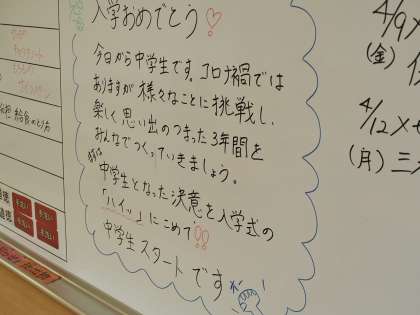 入学おめでとう♡
今日から中学生です。コロナ禍では
ありますが様々なことに挑戦し、
楽しく思い出のつまった3年間を
みんなでつくっていきましょう。
まずは
中学生となった決意を入学式の
「ハイッ」にこめて!!
中学生スタートです
4/9
(金)
4/12
(月)
給食の